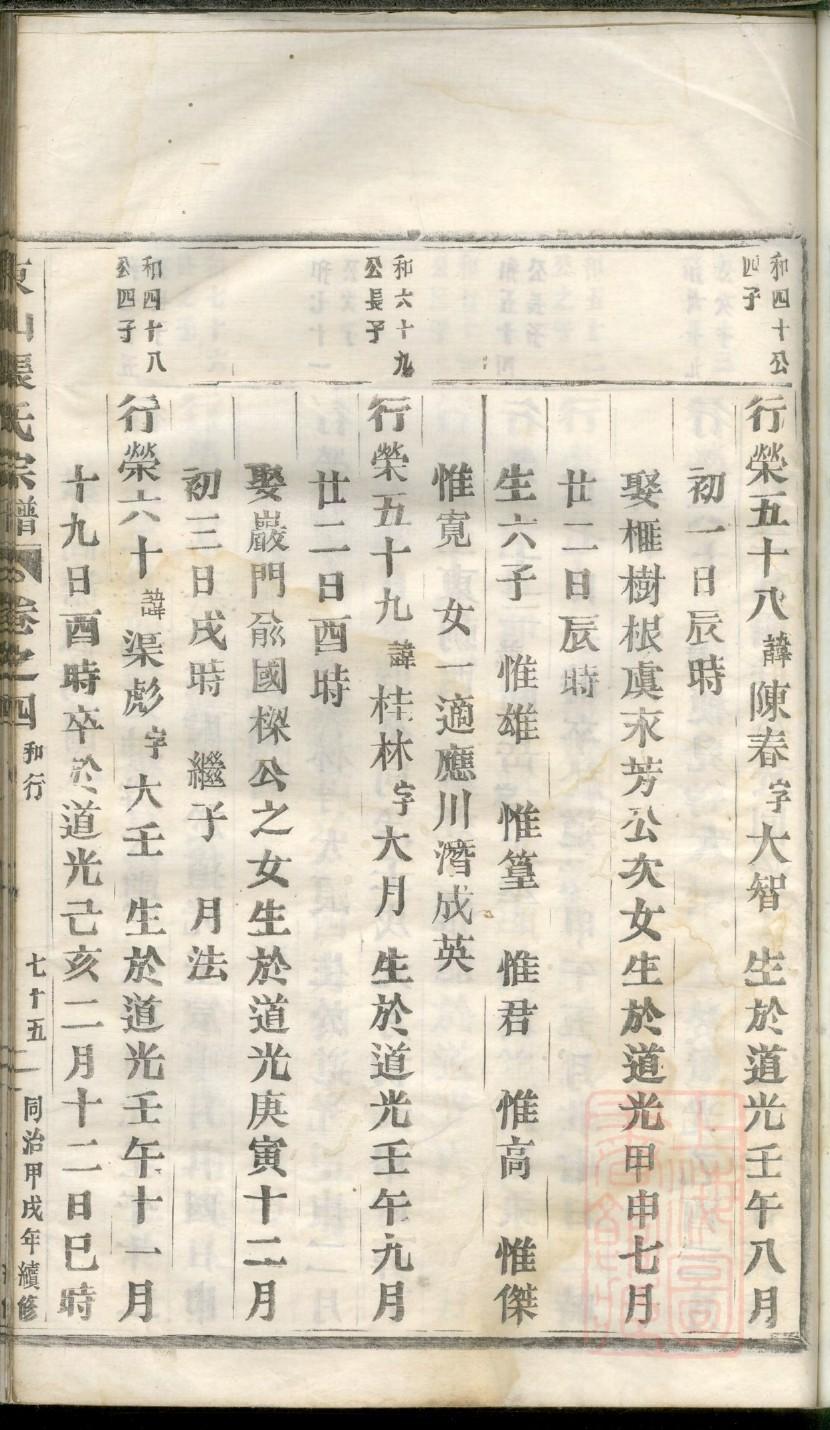 和四十公
四子
行榮五十八諱陳春字大智　生於道光壬午八月
初一日辰時
娶榧樹根虞永芳公次女生於道光甲申七月
廿二日辰時
生六子　惟雄　惟篁　惟君　惟高　惟傑
惟寬　女一適應川潛成英
和六十九
公長子
行榮五十九諱桂林字大月　生於道光壬午九月
廿二日酉時
娶巖門兪國樑公之女生於道光庚寅十二月
初三日戌時　繼子　月法
和四十八
公四子
行榮六十諱渠彪字大壬　生於道光壬午十一月
十九日酉時卒於道光己亥二月十二日巳時
東山張氏宗譜　卷之四　和行　七十五　同治甲戌年續修